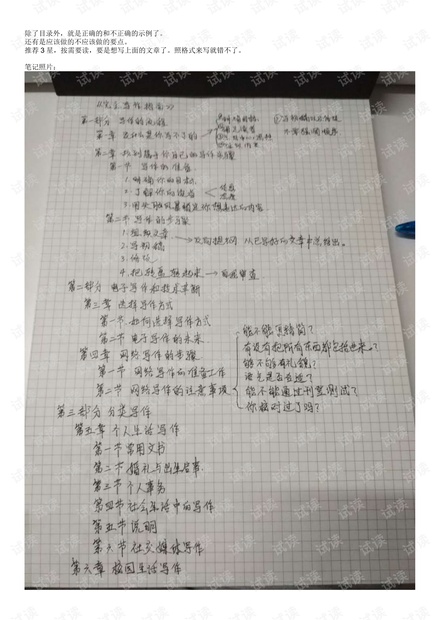 除了目录外，就是正确的和不正确的示例了。
还有是应该做的不应该做的要点。
推荐 3 星，按需要读，要是想写上面的文章了，照格式来写就错不了。
笔记照片：
第一部分 写作的流程
第二章 找到属于你自己的写作步骤
第一节 写作的准备
1.明确你的目标
2.了解你的读者
第二节 写作的步骤
3.修改
第二部分 电子写作和技术革新
第三章 选择写作方式
第一节 如何选择写作方式
第二节 电子写作的未来
第四章 网络写作的步骤
第一节 网络写作的准备工作
第二节 网络写作的注意事项
能不能更精简？
有没有把所有东西都包括进来？
能不能够有礼貌？
语气是否合适？
能不能通过刊登测试？
你校对过了吗？
第三部分 分类写作
第五章 个人生活写作
第一节 常用文书
第二节 婚礼与出生启事
第三节 个人事务
第四节 社会生活中的写作
第五节 说明
第六节 社交媒体写作
第六章 校园生活写作